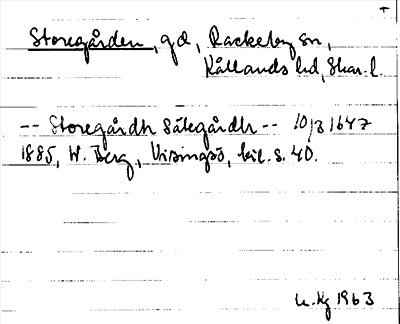 +
Storegården, gd, Rackeby sn,
Kållands hd, Skar. l.
-- Storegårdh Sätegårdh -- 10/3 1647
1885, W. Berg, Visingsö, bil. s. 40.
1963